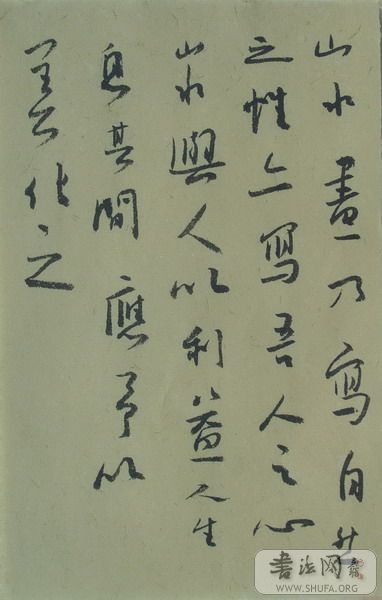 山水畫乃寫自然
之性亦寫吾人之心
山水與人以利益人生
息其間應予以
化之
书法网
WWW.SHUFA.ORG